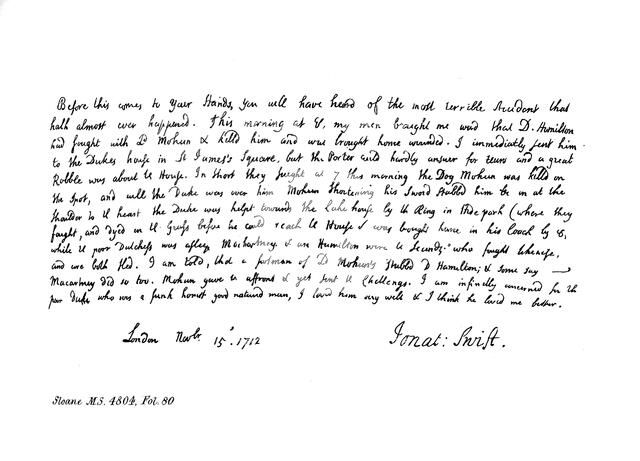 Before this comes to your Hands, you will have heard of the most terrible Accident that
hath almost ever happened. This morning at 8, my man brought me word that D. Hamilton
had fought with Ld Mohun & killed him and was brought home wounded. I immediatly sent him
to the Dukes house in St James's Square, but the Porter could hardly answer for tears and a great
Rabble was about the House. In short they fought at 7 this morning the Dog Mohun was killed on
the spot, and while the Duke was over him Mohun shortening his Sword stabbed him in at the
shoulder to the heart the Duke was helpt towards the Lake house by the Ring in Hide park (where they
fought, and dyed on the Grass before he could reach the House & was brought home in his Coach by 8,
while the poor Dutchess was asleep. Macartney & one Hamilton were the Seconds who fought likewise,
and are both fled. I am told, that a footman of Ld Mohun's stabbed D Hamilton; & some say
Macartney did so too. Mohun gave the affront & yet sent the Challenge. I am infinitly concerned for the
poor Duke who was a frank honest good natured man, I loved him very well & I think he loved me better.
London Novbr 15. 1712
Jonat: Swift.
Sloane MS. 4804, Fol. 80